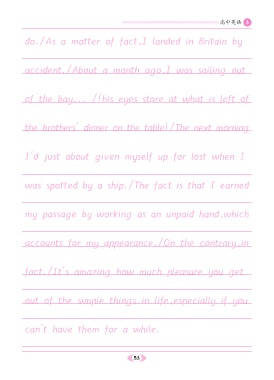 高中英语
do./As a matter of fact,I landed in Britain by
accident./About a month ago,I was sailing out
of the bay... /(his eyes stare at what is left of
the brothers' dinner on the table)/The next morning
I'd just about given myself up for lost when I
was spotted by a ship./The fact is that I earned
my passage by working as an unpaid hand,which
accounts for my appearance./On the contrary,in
fact,/It's amazing how much pleasure you get
out of the simple things in life,especially if you
can't have them for a while.
53